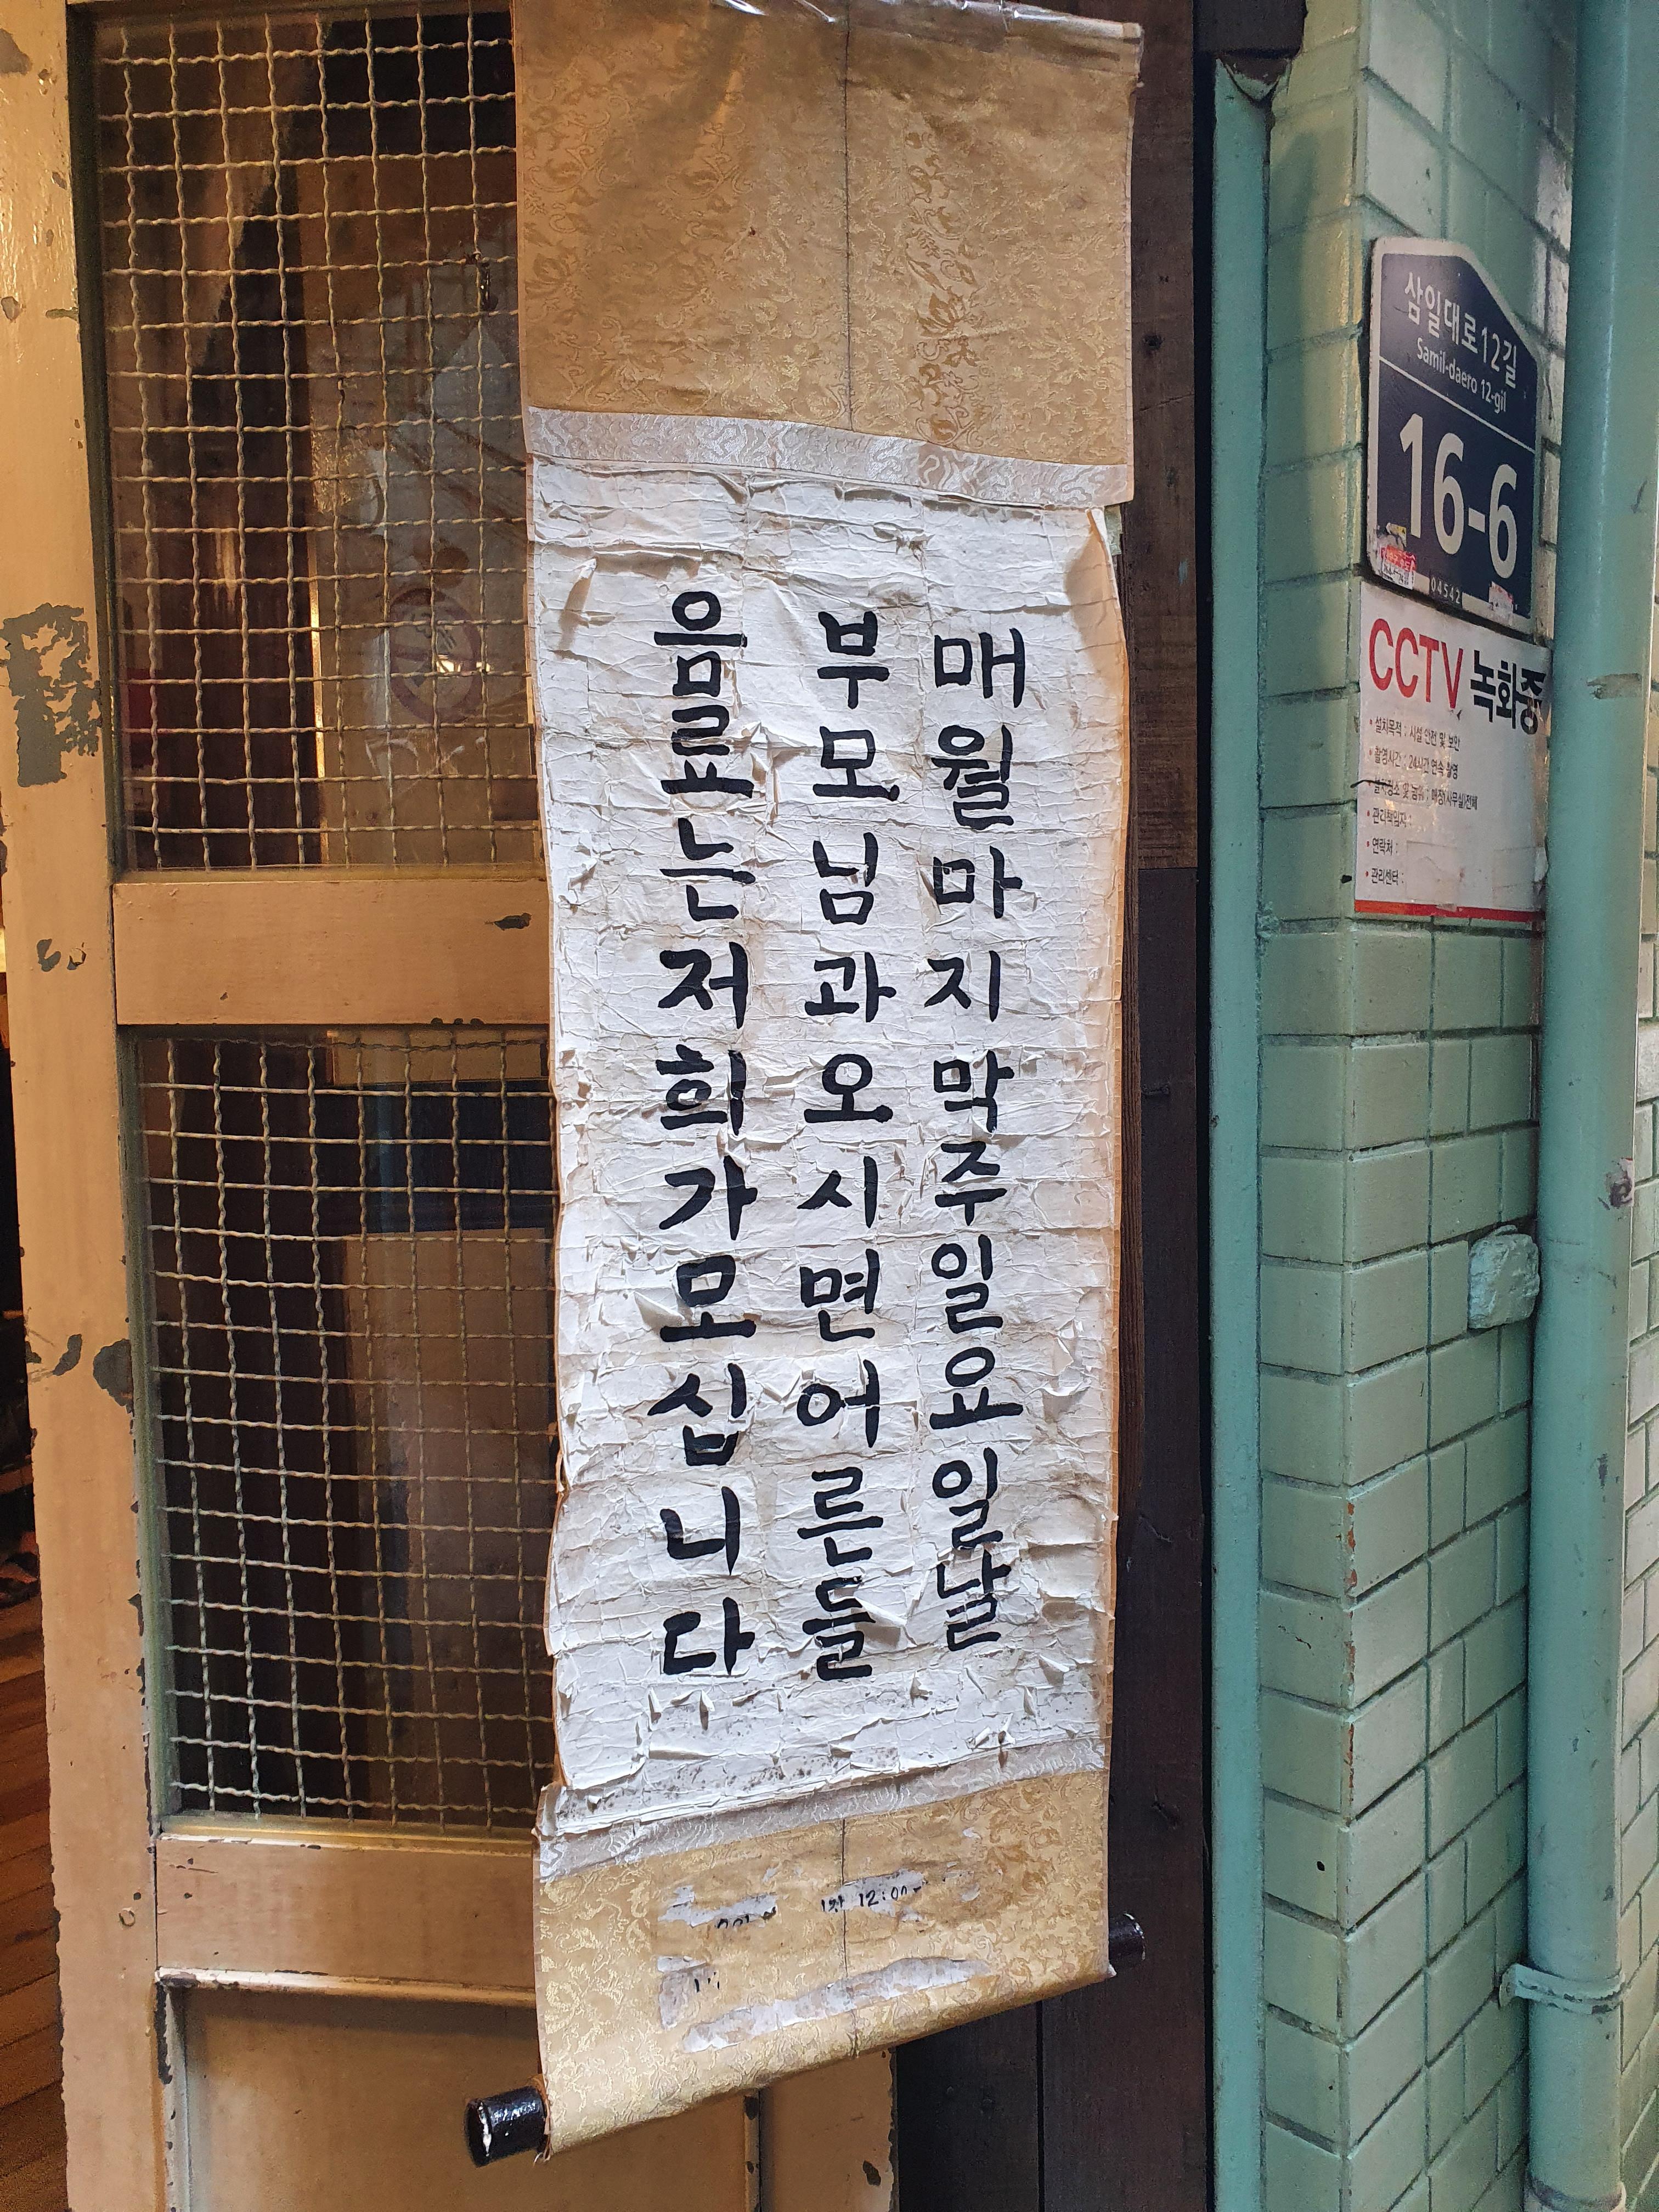 매월마지막주일요일날
부모님과오시면어른들
음료는저희가모십니다
12:00~
삼일대로12길
Samil-daero 12-gil
16-6
04542
CCTV 녹화중
• 설치목적 : 시설 안전 및 보안
• 촬영시간 : 24시간 연속 촬영
• 설치장소 및 범위 : 매장(사무실)전체
• 관리책임자 :
• 연락처 :
• 관리센터 :